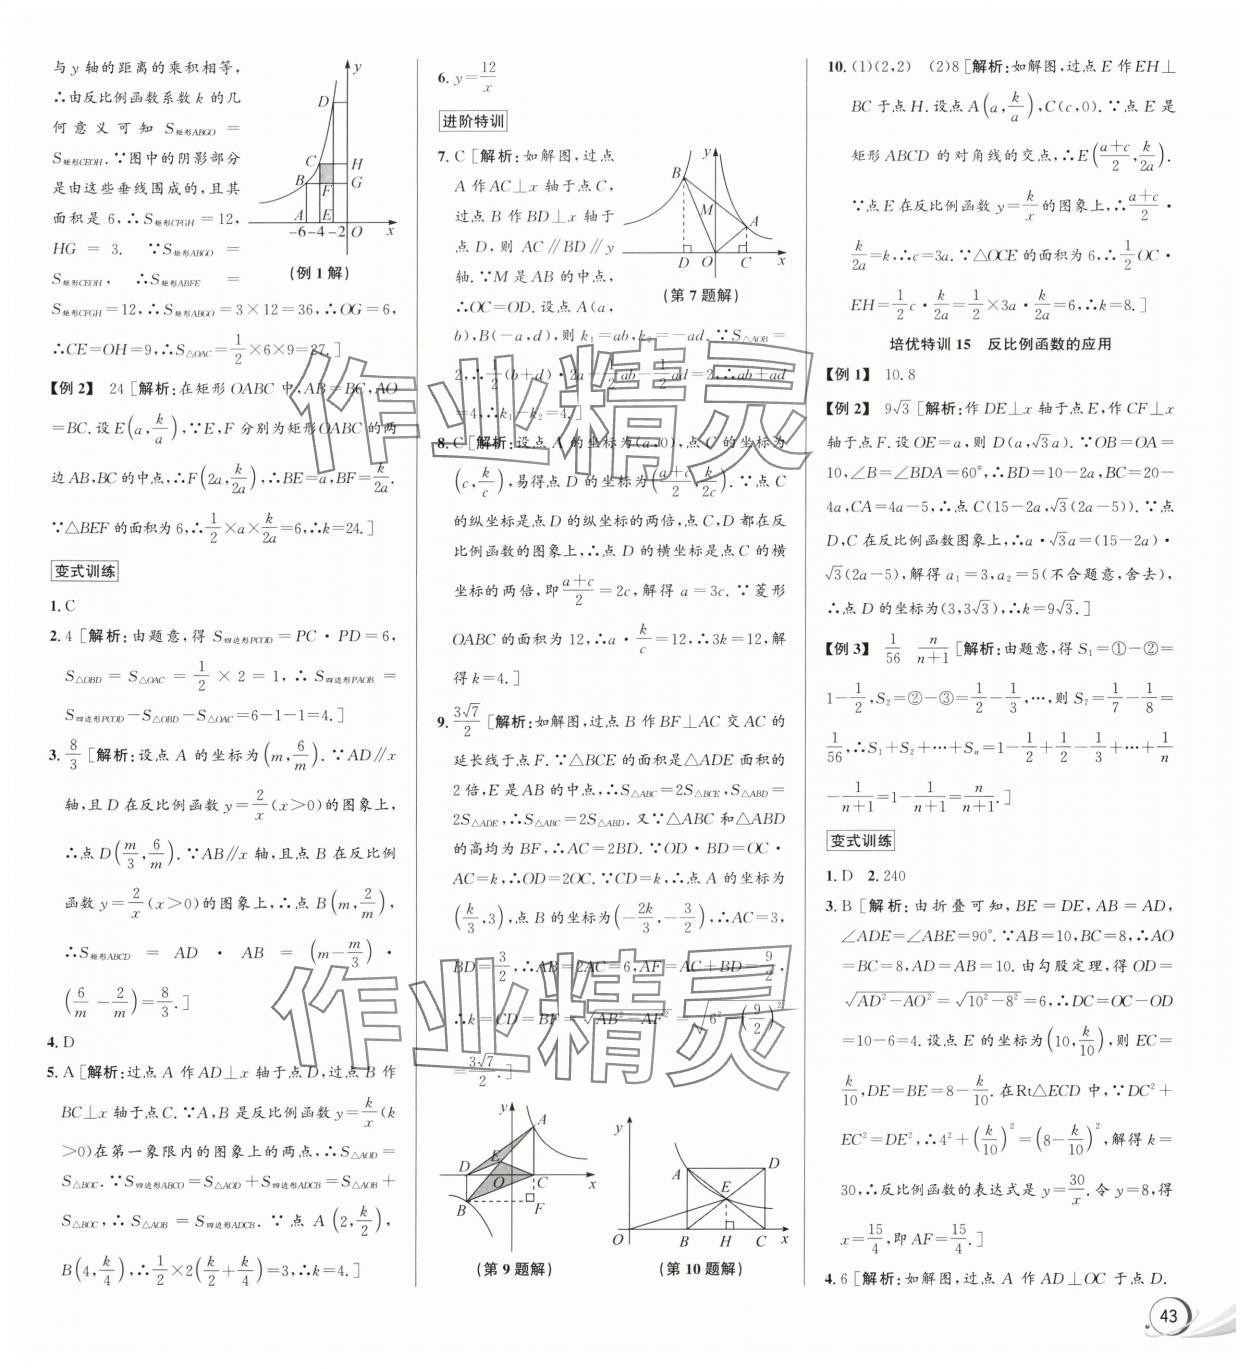 与y轴的距离的乘积相等,
∴由反比例函数系数k的几
何意义可知 S矩形ABGO =
S矩形CEOH.∵图中的阴影部分
是由这些垂线围成的,且其
面积是6,∴S矩形CFGH=12,
HG=3. ∵S矩形ABGO =
S矩形CEOH, ∴S矩形ABFE =
S矩形CFGH=12,∴S矩形ABGO=3×12=36,∴OG=6,
∴CE=OH=9,∴S△OAC=1/2×6×9=27.]
y
D
C H
B F G
A E
-6 -4 -2 O x
(例1解)
【例2】 24 [解析:在矩形OABC中,AB=BC,AO
=BC.设E(a,k/a),∵E,F分别为矩形OABC的两
边AB,BC的中点,∴F(2a,k/2a),∴BE=a,BF=k/2a.
∵△BEF的面积为6,∴1/2×a×k/2a=6,∴k=24.]
变式训练
1.C
2.4 [解析:由题意,得S四边形PCOD=PC·PD=6,
S△OBD=S△OAC=1/2×2=1,∴S四边形PAOB=
S四边形PCOD-S△OBD-S△OAC=6-1-1=4.]
3.8/3 [解析:设点A的坐标为(m,6/m).∵AD∥x
轴,且D在反比例函数y=2/x(x>0)的图象上,
∴点D(m/3,6/m).∵AB∥x轴,且点B在反比例
函数y=2/x(x>0)的图象上,∴点B(m,2/m),
∴S矩形ABCD = AD · AB = (m-m/3)·
(6/m-2/m)=8/3.]
4.D
5.A [解析:过点A作AD⊥x轴于点D,过点B作
BC⊥x轴于点C.∵A,B是反比例函数y=k/x(k
>0)在第一象限内的图象上的两点,∴S△AOD=
S△BOC.∵S四边形ABCO=S△AOD+S四边形ADCB=S△AOB+
S△BOC,∴S△AOB=S四边形ADCB.∵点A(2,k/2),
B(4,k/4),∴1/2×2(k/2+k/4)=3,∴k=4.]
6.y=12/x
进阶特训
7.C [解析:如解图,过点
A作AC⊥x轴于点C,
过点B作BD⊥x轴于
点D,则AC∥BD∥y
轴.∵M是AB的中点,
∴OC=OD.设点A(a,
b),B(-a,d),则k₁=ab,k₂=-ad.∵S△AOB=
2,∴1/2(b+d)·2a-1/2ab-1/2ad=2,∴ab+ad
=4,∴k₁-k₂=4.]
y
B
M A
D O C x
(第7题解)
8.C [解析:设点A的坐标为(a,0),点C的坐标为
(c,k/c),易得点D的坐标为((a+c)/2,k/2c).∵点C
的纵坐标是点D的纵坐标的两倍,点C,D都在反
比例函数的图象上,∴点D的横坐标是点C的横
坐标的两倍,即(a+c)/2=2c,解得a=3c.∵菱形
OABC的面积为12,∴a·k/c=12,∴3k=12,解
得k=4.]
9.3√7/2 [解析:如解图,过点B作BF⊥AC交AC的
延长线于点F.∵△BCE的面积是△ADE面积的
2倍,E是AB的中点,∴S△ABC=2S△BCE,S△ABD=
2S△ADE,∴S△ABC=2S△ABD.又∵△ABC和△ABD
的高均为BF,∴AC=2BD.∵OD·BD=OC·
AC=k,∴OD=2OC.∵CD=k,∴点A的坐标为
(k/3,3),点B的坐标为(-2k/3,-3/2),∴AC=3,
BD=3/2,∴AB=2AC=6,AF=AC+BD=9/2,
∴k=CD=BF=√(AB²-AF²)=√(6²-(9/2)²)
=3√7/2.]
y
A
D E
O C x
B F
(第9题解)
y
A D
E
O B H C x
(第10题解)
10.(1)(2,2) (2)8 [解析:如解图,过点E作EH⊥
BC于点H.设点A(a,k/a),C(c,0).∵点E是
矩形ABCD的对角线的交点,∴E((a+c)/2,k/2a).
∵点E在反比例函数y=k/x的图象上,∴(a+c)/2·
k/2a=k,∴c=3a.∵△OCE的面积为6,∴1/2OC·
EH=1/2c·k/2a=1/2×3a·k/2a=6,∴k=8.]
培优特训15 反比例函数的应用
【例1】 10.8
【例2】 9√3 [解析:作DE⊥x轴于点E,作CF⊥x
轴于点F.设OE=a,则D(a,√3a).∵OB=OA=
10,∠B=∠BDA=60°,∴BD=10-2a,BC=20-
4a,CA=4a-5,∴点C(15-2a,√3(2a-5)).∵点
D,C在反比例函数图象上,∴a·√3a=(15-2a)·
√3(2a-5),解得a₁=3,a₂=5(不合题意,舍去),
∴点D的坐标为(3,3√3),∴k=9√3.]
【例3】 1/56 n/(n+1) [解析:由题意,得S₁=①-②=
1-1/2,S₂=②-③=1/2-1/3,…,则S₇=1/7-1/8=
1/56,∴S₁+S₂+…+Sₙ=1-1/2+1/2-1/3+…+1/n
-1/(n+1)=1-1/(n+1)=n/(n+1).]
变式训练
1.D 2.240
3.B [解析:由折叠可知,BE=DE,AB=AD,
∠ADE=∠ABE=90°.∵AB=10,BC=8,∴AO
=BC=8,AD=AB=10.由勾股定理,得OD=
√(AD²-AO²)=√(10²-8²)=6,∴DC=OC-OD
=10-6=4.设点E的坐标为(10,k/10),则EC=
k/10,DE=BE=8-k/10.在Rt△ECD中,∵DC²+
EC²=DE²,∴4²+(k/10)²=(8-k/10)²,解得k=
30,∴反比例函数的表达式是y=30/x.令y=8,得
x=15/4,即AF=15/4.]
4.6 [解析:如解图,过点A作AD⊥OC于点D.
43
作业精灵
作业精灵